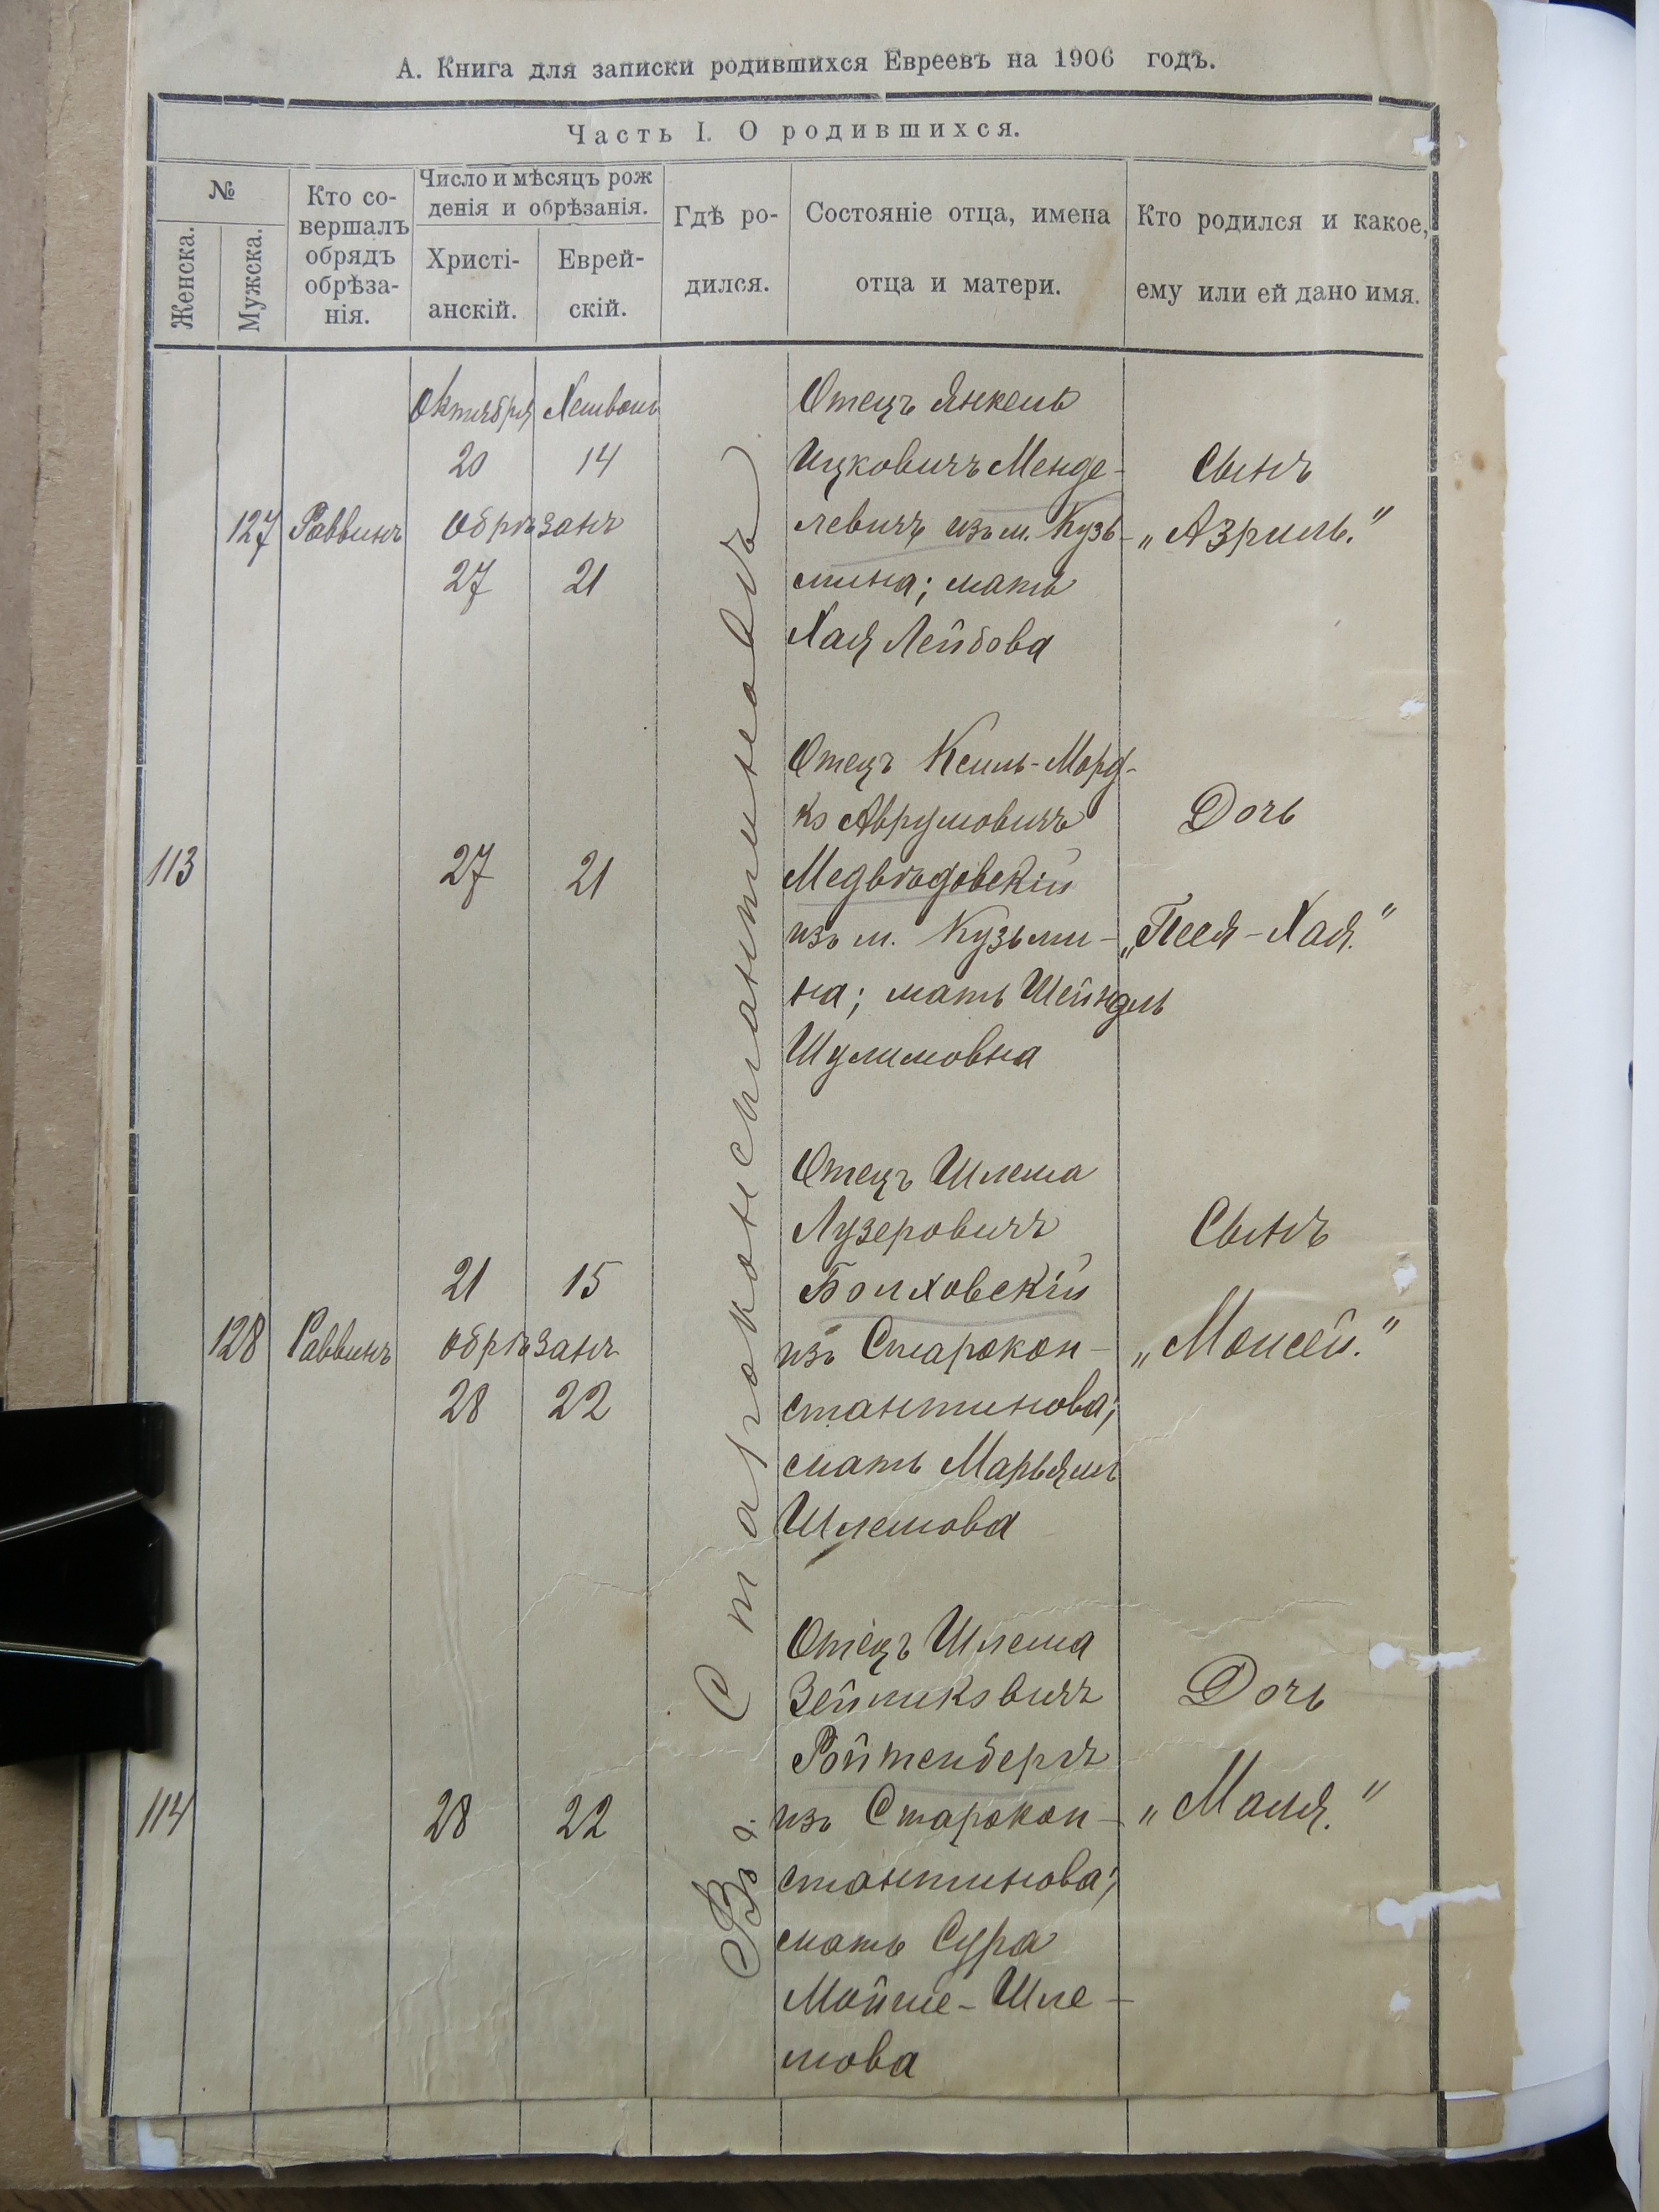 А. Книга для записки родившихся Евреевъ на 1906 годъ.
Часть I. О родившихся.
№
Женска.
Мужска.
Кто со-
вершалъ
обрядъ
обрѣза-
нія.
Число и мѣсяцъ рож
денія и обрѣзанія.
Христі-
анскій.
Еврей-
скій.
Гдѣ ро-
дился.
Состояніе отца, имена
отца и матери.
Кто родился и какое,
ему или ей дано имя.
Въ г. Староконстантиновѣ
127 Раввинъ
Октября Хешвонъ
20 14
обрѣзанъ
27 21
Отецъ Янкель
Ицковичъ Менде-
левичъ изъ м. Кузь-
мина; мать
Хая Лейбова
Сынъ
„Азриль."
113
27 21
Отецъ Кеиль-Морд-
ко Аврумовичъ
Медвѣдовскій
изъ м. Кузьми-
на; мать Шейндль
Шулимовна
Дочь
„Песя-Хая."
128 Раввинъ
21 15
обрѣзанъ
28 22
Отецъ Шлема
Лузеровичъ
Болховскій
изъ Старокон-
стантинова;
мать Марьямъ
Шлемова
Сынъ
„Моисей."
114
28 22
Отецъ Шлема
Зейликовичъ
Ройтенбергъ
изъ Старокон-
стантинова;
мать Сура
Мойше-Шле-
мова
Дочь
„Маня."